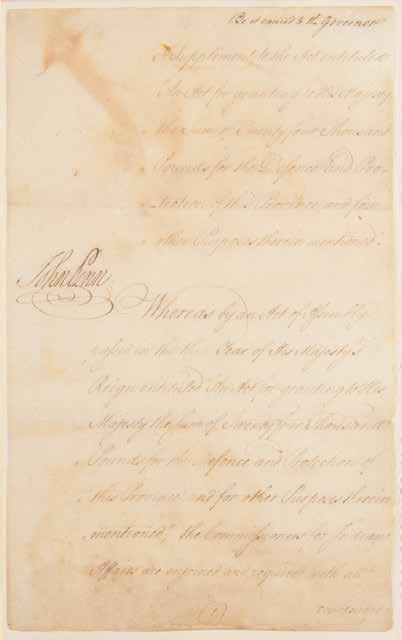 Be it carried to the Governor
A Supplement to the Act entituled
An Act for granting to His Majesty
the Sum of Twenty four Thousand
Pounds for the Defence and Pro-
tection of this Province, and for
other Purposes therein mentioned.
John Penn
Whereas by an Act of Assembly
passed in the Year of His Majesty's
Reign entituled An Act for granting to His
Majesty the Sum of Twenty four Thousand
Pounds for the Defence and Protection of
this Province and for other Purposes therein
mentioned, the Commissioners for Indian
Affairs are enjoined and required with all
(1)